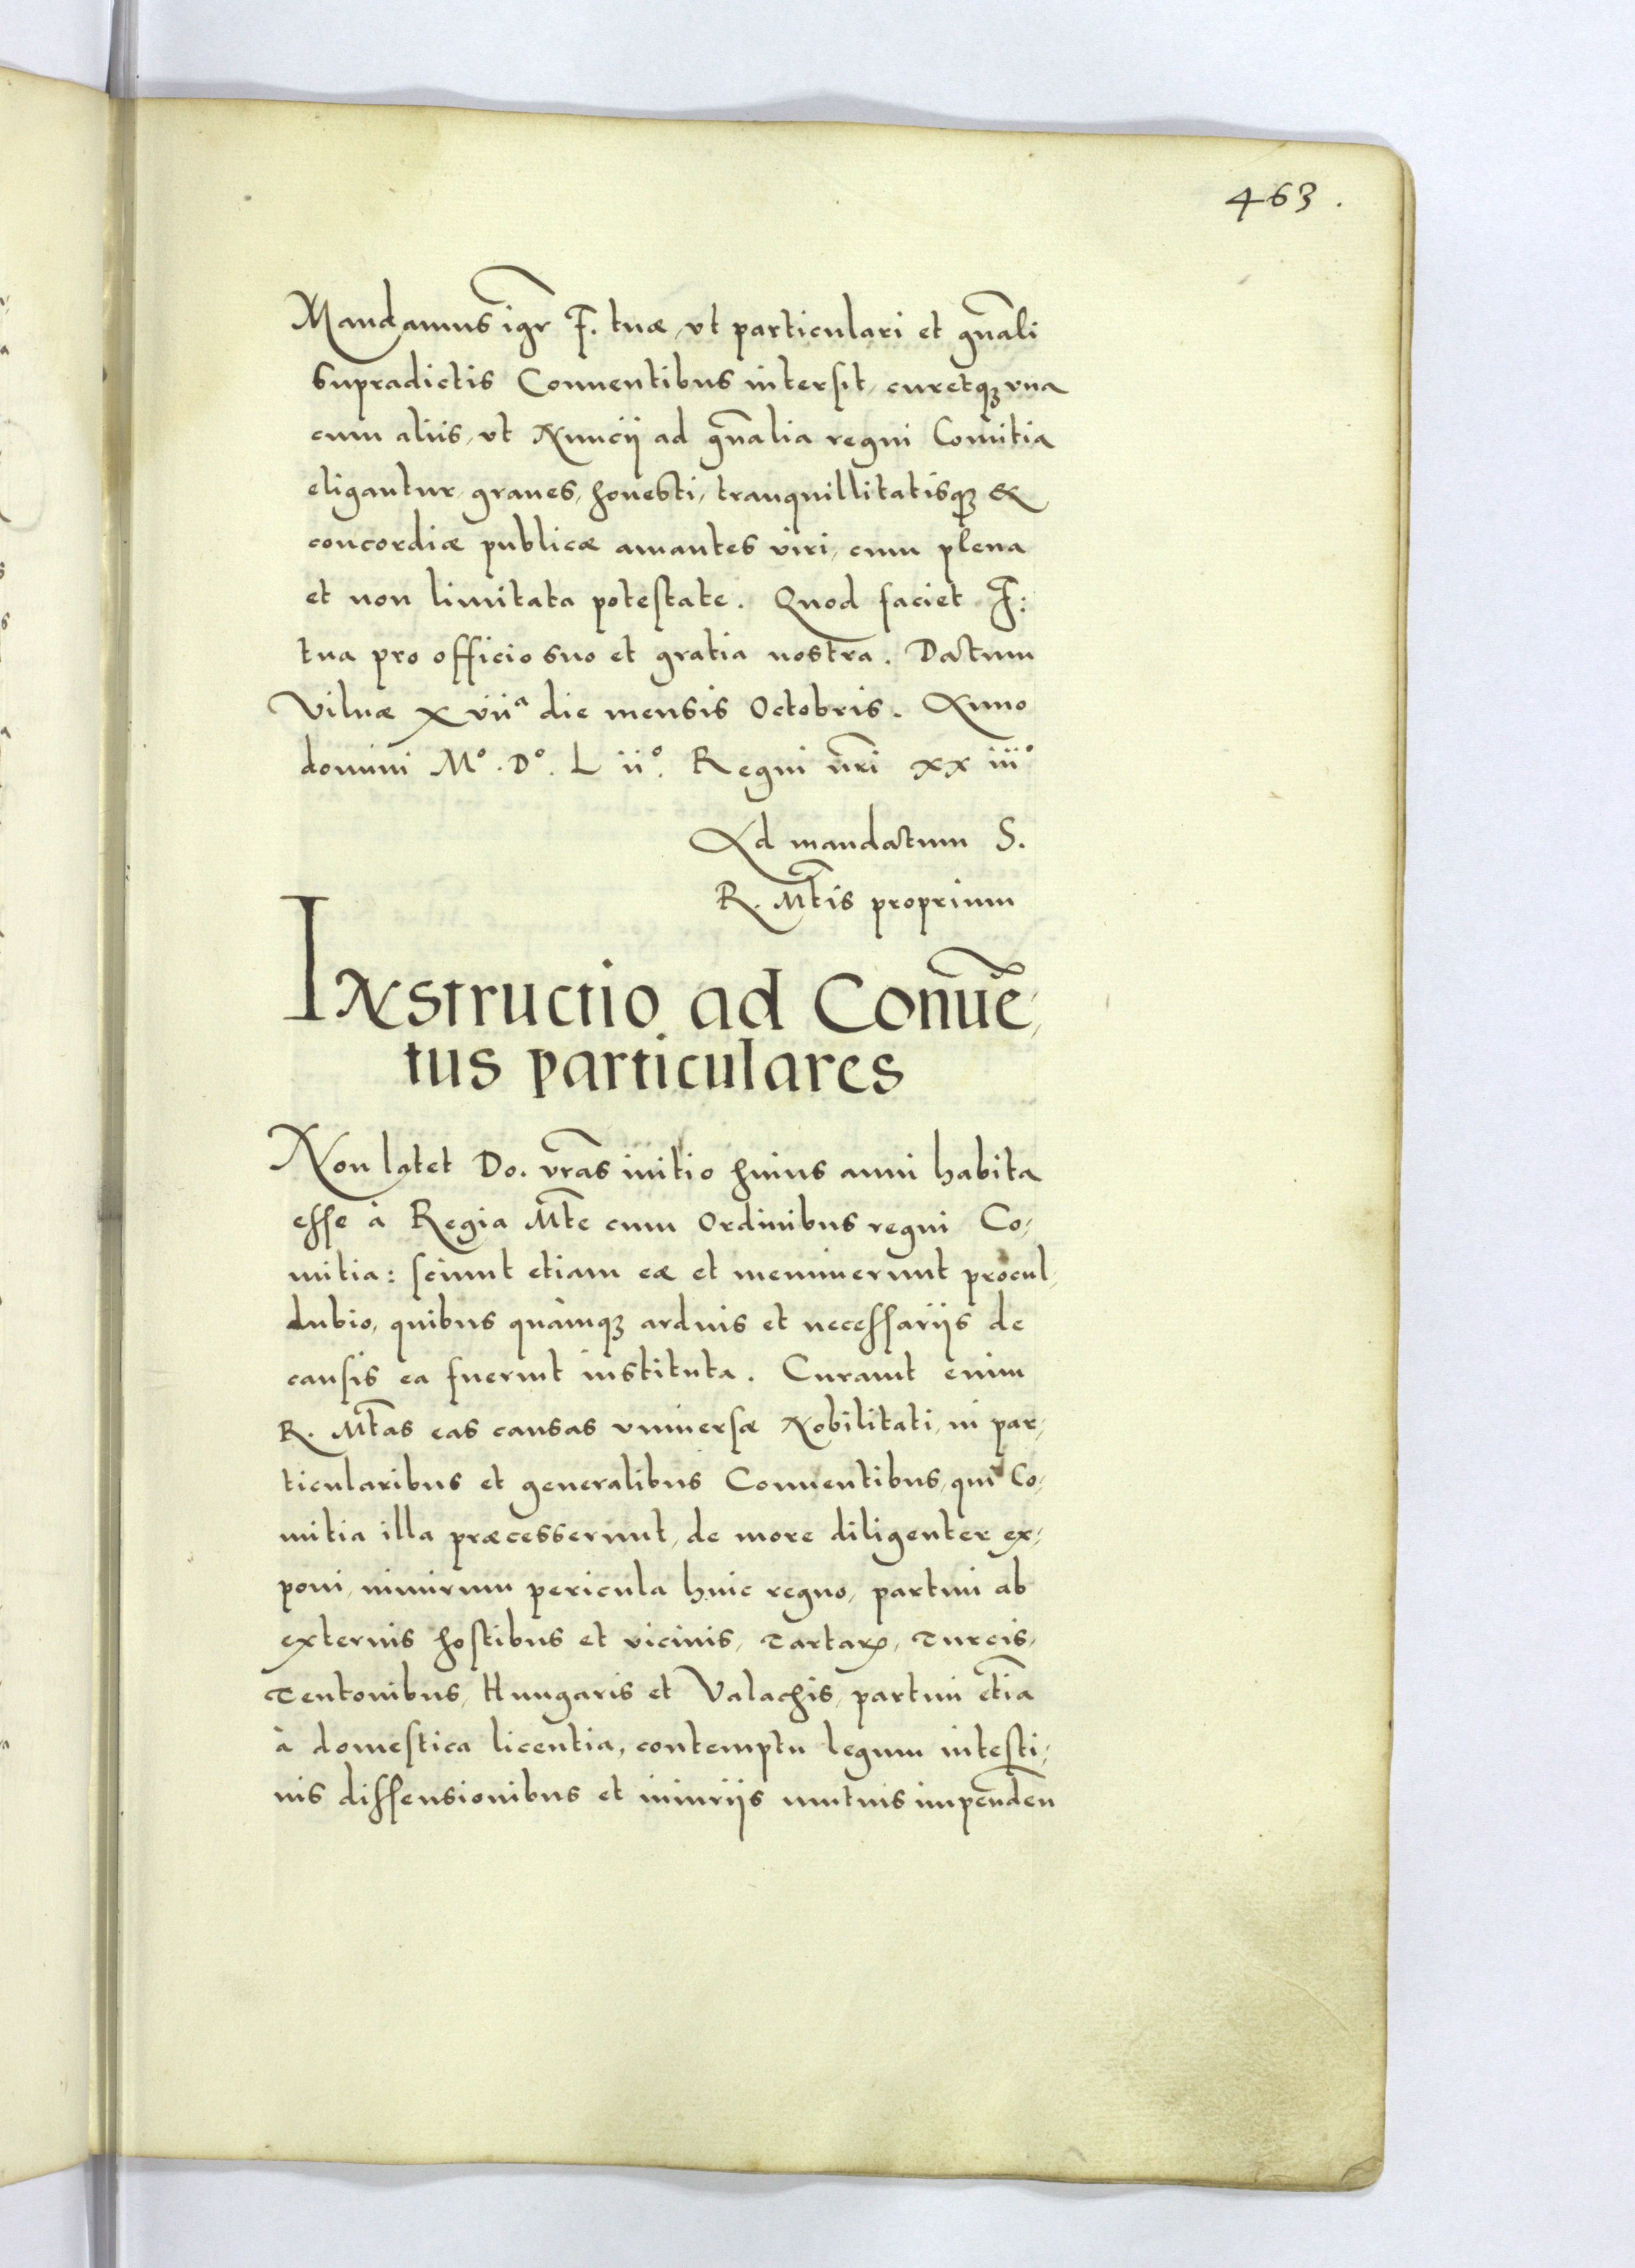 463.
Mandamus igr̃ F. tuæ, vt particulari et gñali
supradictis Conuentibus intersit, curetqꝫ vna
cum aliis, vt Nuncij ad gñalia regni Comitia
eligantur, graues, honesti, tranquillitatisqꝫ &
concordiæ publicæ amantes viri, cum plena
et non limitata potestate. Quod faciet F:
tua pro officio suo et gratia nostra. Datum
Vilnæ XVIIª die mensis Octobris. Anno
domini Mº. Dº. L iiº. Regni nr̃i xx iiiº
Ad mandatum S.
R. Mt̃is proprium
INstructio ad Conuẽ,
tus particulares
Non latet Do. vr̃as initio huius anni habita
esse à Regia Mt̃e cum Ordinibus regni Co,
mitia: sciunt etiam eæ et meminerunt procul,
dubio, quibus quàmqꝫ arduis et necessarijs de
causis ea fuerint instituta. Curauit enim
R. Mt̃as eas causas vniuersæ Nobilitati, in par,
ticularibus et generalibus Conuentibus, qui Co,
mitia illa præcesserunt, de more diligenter ex,
poni, nimirum pericula huic regno, partim ab
externis hostibus et vicinis, Tartaꝝ, Turcis,
Teutonibus, Hungaris et Valachis, partim etiã
à domestica licentia, contemptu legum intesti,
nis dissensionibus et iniurijs mutuis impenden